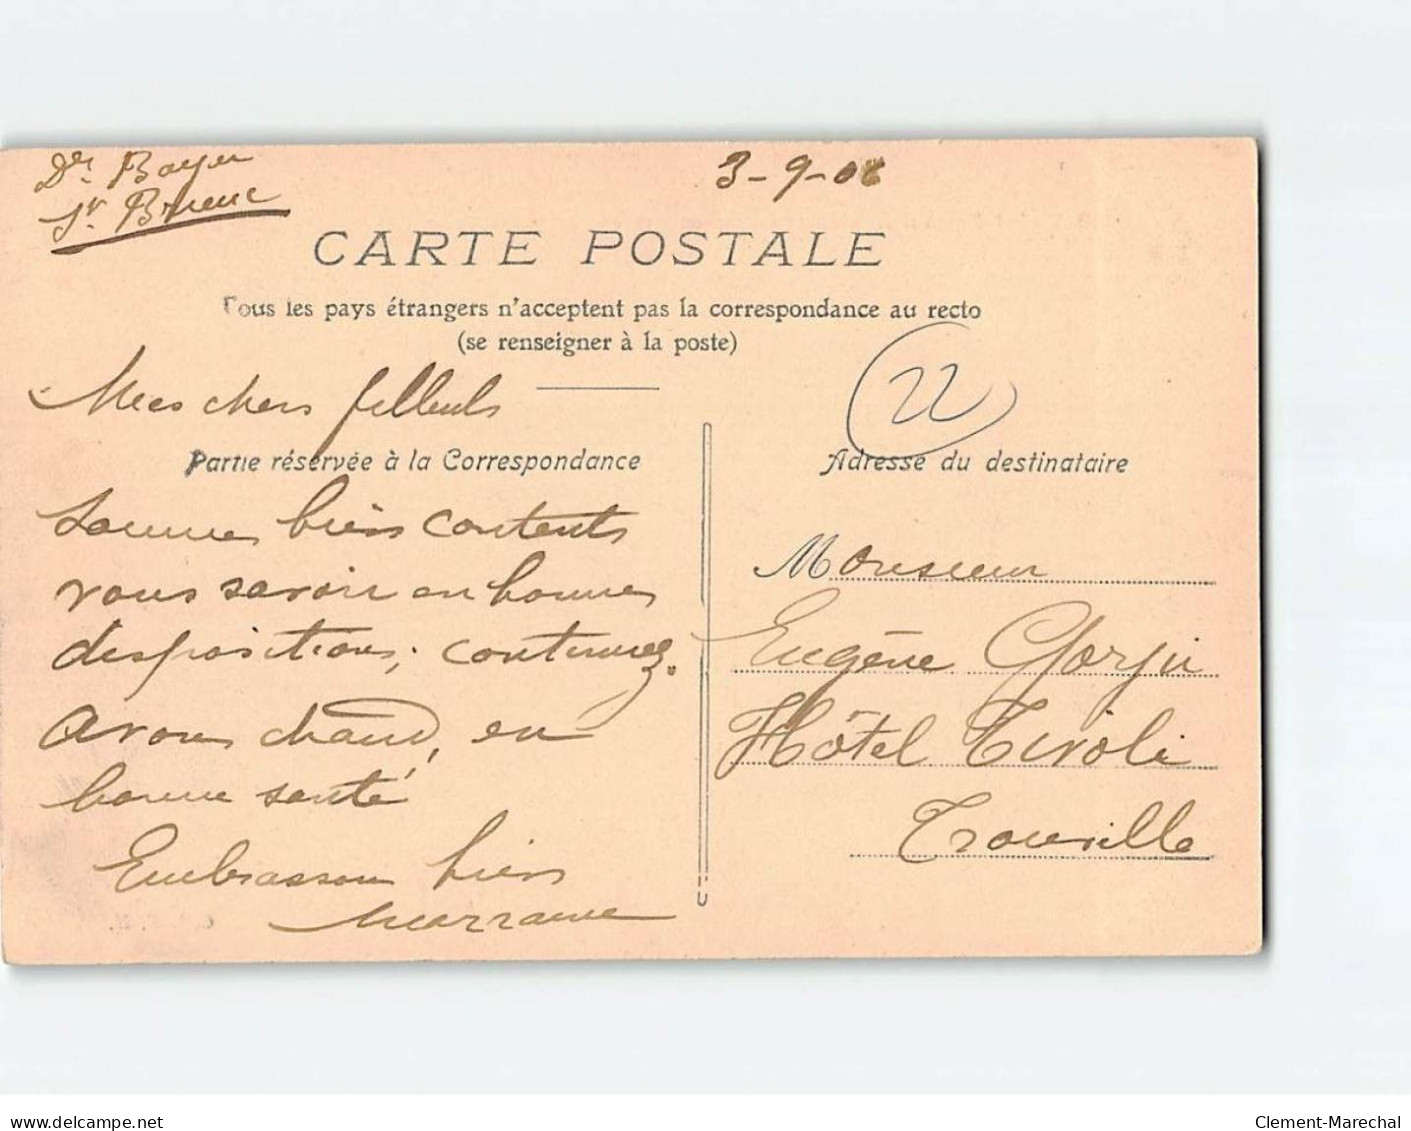 Dr. Boyer
St. Brieuc
3-9-08
CARTE POSTALE
Tous les pays étrangers n'acceptent pas la correspondance au recto
(se renseigner à la poste)
22
Mes chers filleuls
Partie réservée à la Correspondance
Somme bien contents
vous savoir en bonnes
dispositions; continuez.
avons chaud, en
bonne santé
Embrassons bien
Marraine
Adresse du destinataire
Monsieur
Eugène Gorju
Hôtel Tivoli
Trouville
www.delcampe.net
Clement-Marechal